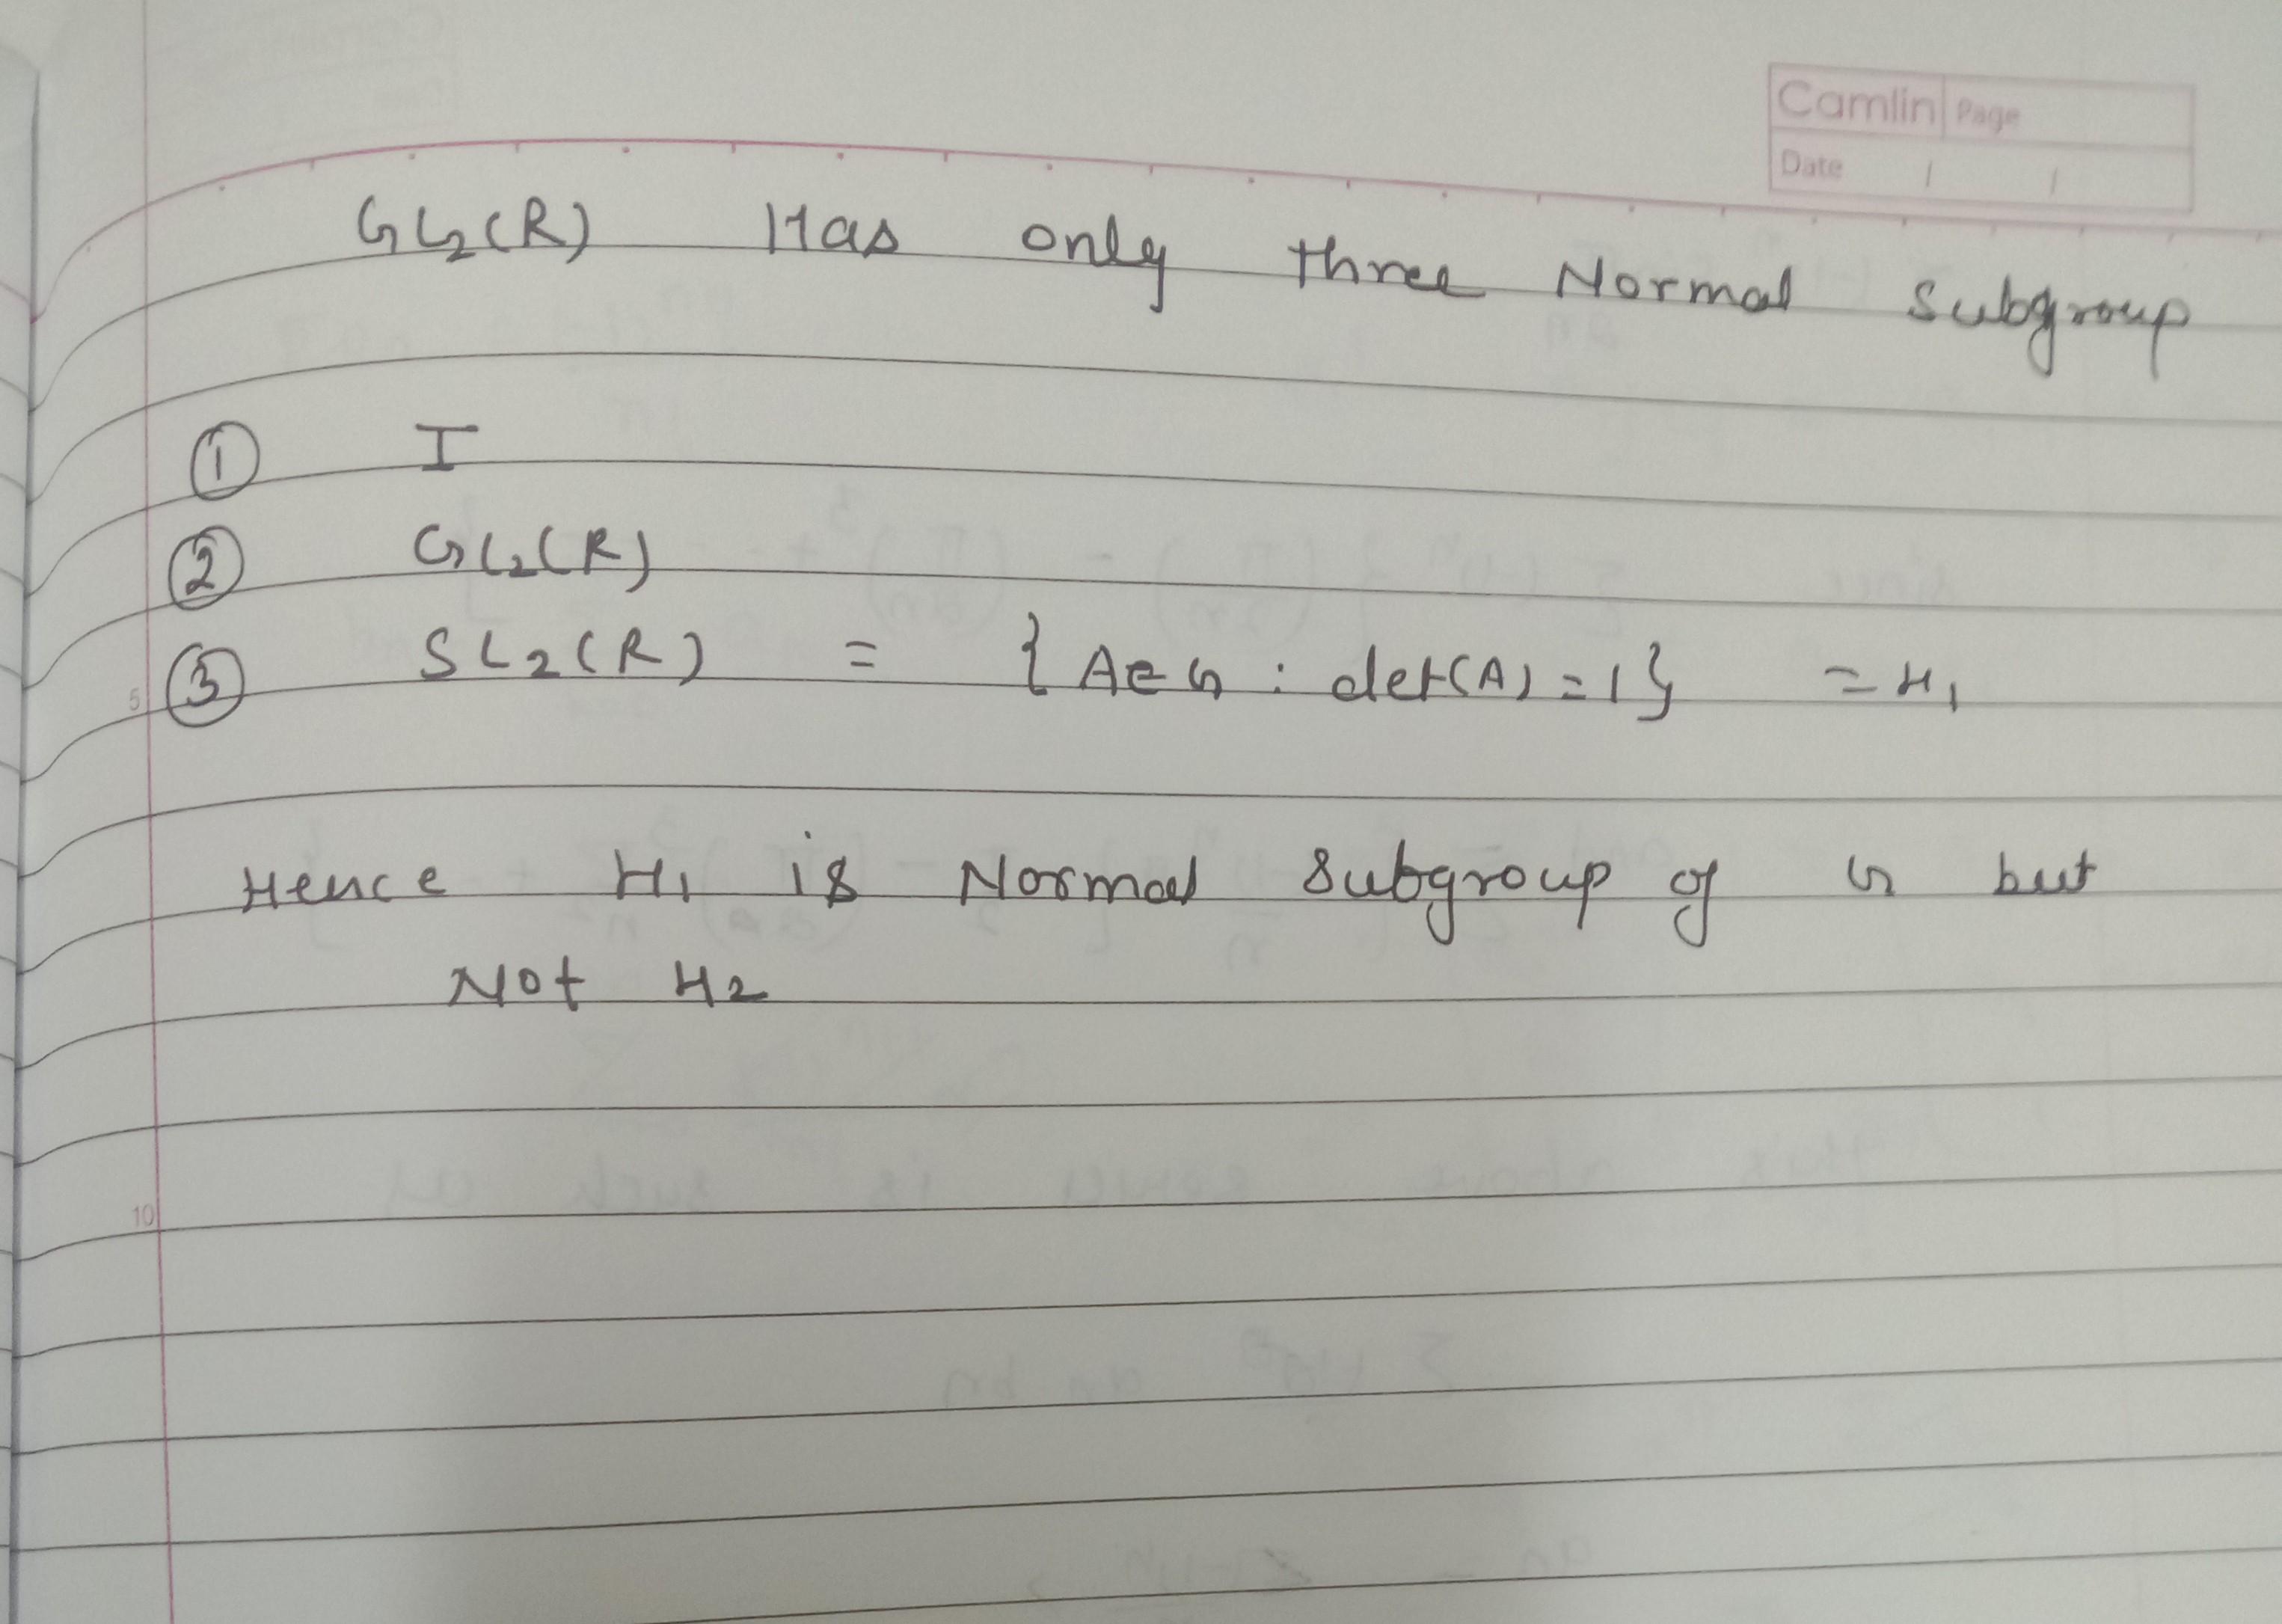 Camlin Page
Date / /
GL₂(R) Has only three Normal subgroup
① I
② GL₂(R)
5 ③ SL₂(R) = { A∈G : det(A) = 1 } = H₁
Hence H₁ is Normal Subgroup of G but
Not H₂
10